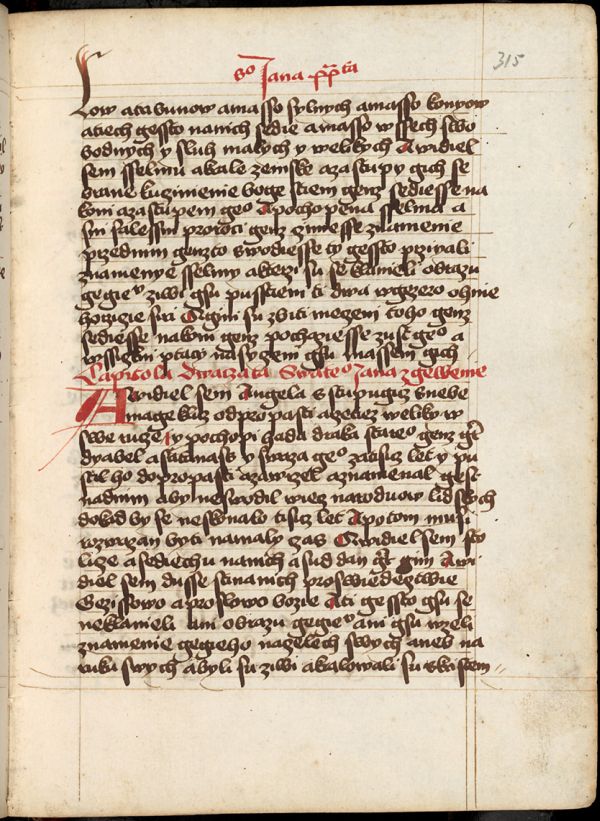 315
Low atribunow amasso sylnych amasso konyow
atiech gessto nanich sedie amasso wssech swo
bodnych y sluh malych y welikych Awidiel
sem sselmu akrale zemske azastupy gich se
brane kuczinienie boge stiem genz sediesse na
koni azastupem geo Apochopena sselma a
sni falessni prorocz genz cziniesse znamenie
przednim genzto swodiesse ty gessto przigali
znamenye sselmy akterzi su se klanieli obrazu
gegiev ziwi gsu pusstieni ti dwa wgezero ohnie
horziczie siri Agini su zbiti meczem toho genz
sediesse nakoni genz pochaziesse zust geo a
wssiczkni ptaczi nasyczeni gsu massem gich
Capitola Dwaczata Swateo Jana zgewenie
Awidiel sem Angela sstupugicz snebe
Amage klicz odpropasti arzetiez weliky w
swe rucze y pochopi hada draka stareo genz gt
dyabel asatanass y swaza geo zatisicz let y pu
stil ho dopropasti azawrzel aznamenal gest
nadnim aby neswodil wiecz naroduow lidskych
dokud by se neskonalo tisicz let Apotom musi
rozwazan byti namaly czas Awidiel sem sto
licze asediechu nanich asud dan gt gim Awi
diel sem dusse stinanich proswiedecztwie
Gezissowo aproslowo bozie Ati gessto gsu se
neklanieli ani obrazu gegiev ani gsu wzeli
znamenie gegieho naczelech swych aneb na
ruku swych abyli su ziwi akralowali su skristem